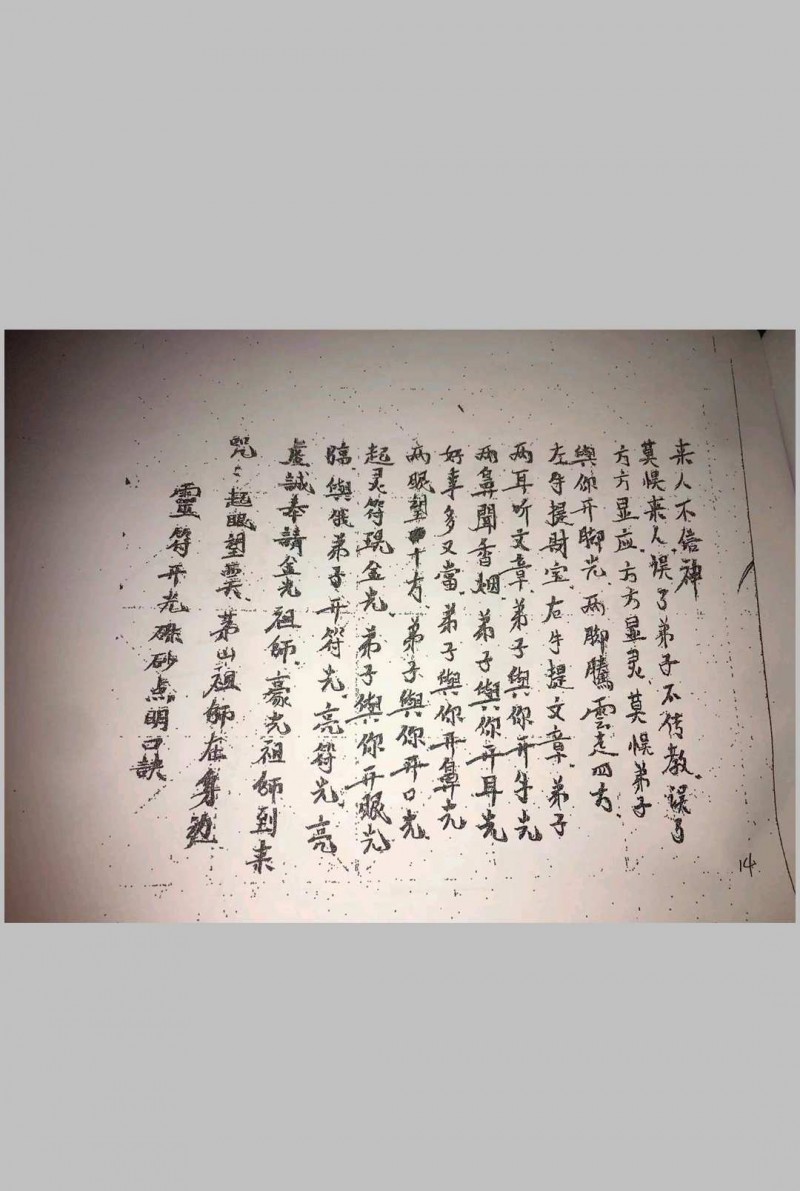 靈符开光硃砂点明口訣
咒:起眼望異、茅山祖師在身边
虔誠奉請金光祖師、豪光祖師到来
臨、與俄弟子开符光、亮符光、亮
起灵符现金光、弟子與你开眼光
两眼望十方、弟子與你开口光、
好事多又當、弟子與你开鼻光
两鼻聞香烟、弟子與你开耳光
两耳听文章、弟子與你开手光
左手提財宝、右手提文章、弟子
與你开脚光、两脚騰雲走四方、
方方显应、方方显灵、莫悮弟子
莫悮来人、误了弟子不传教、误了
来人不信神
14